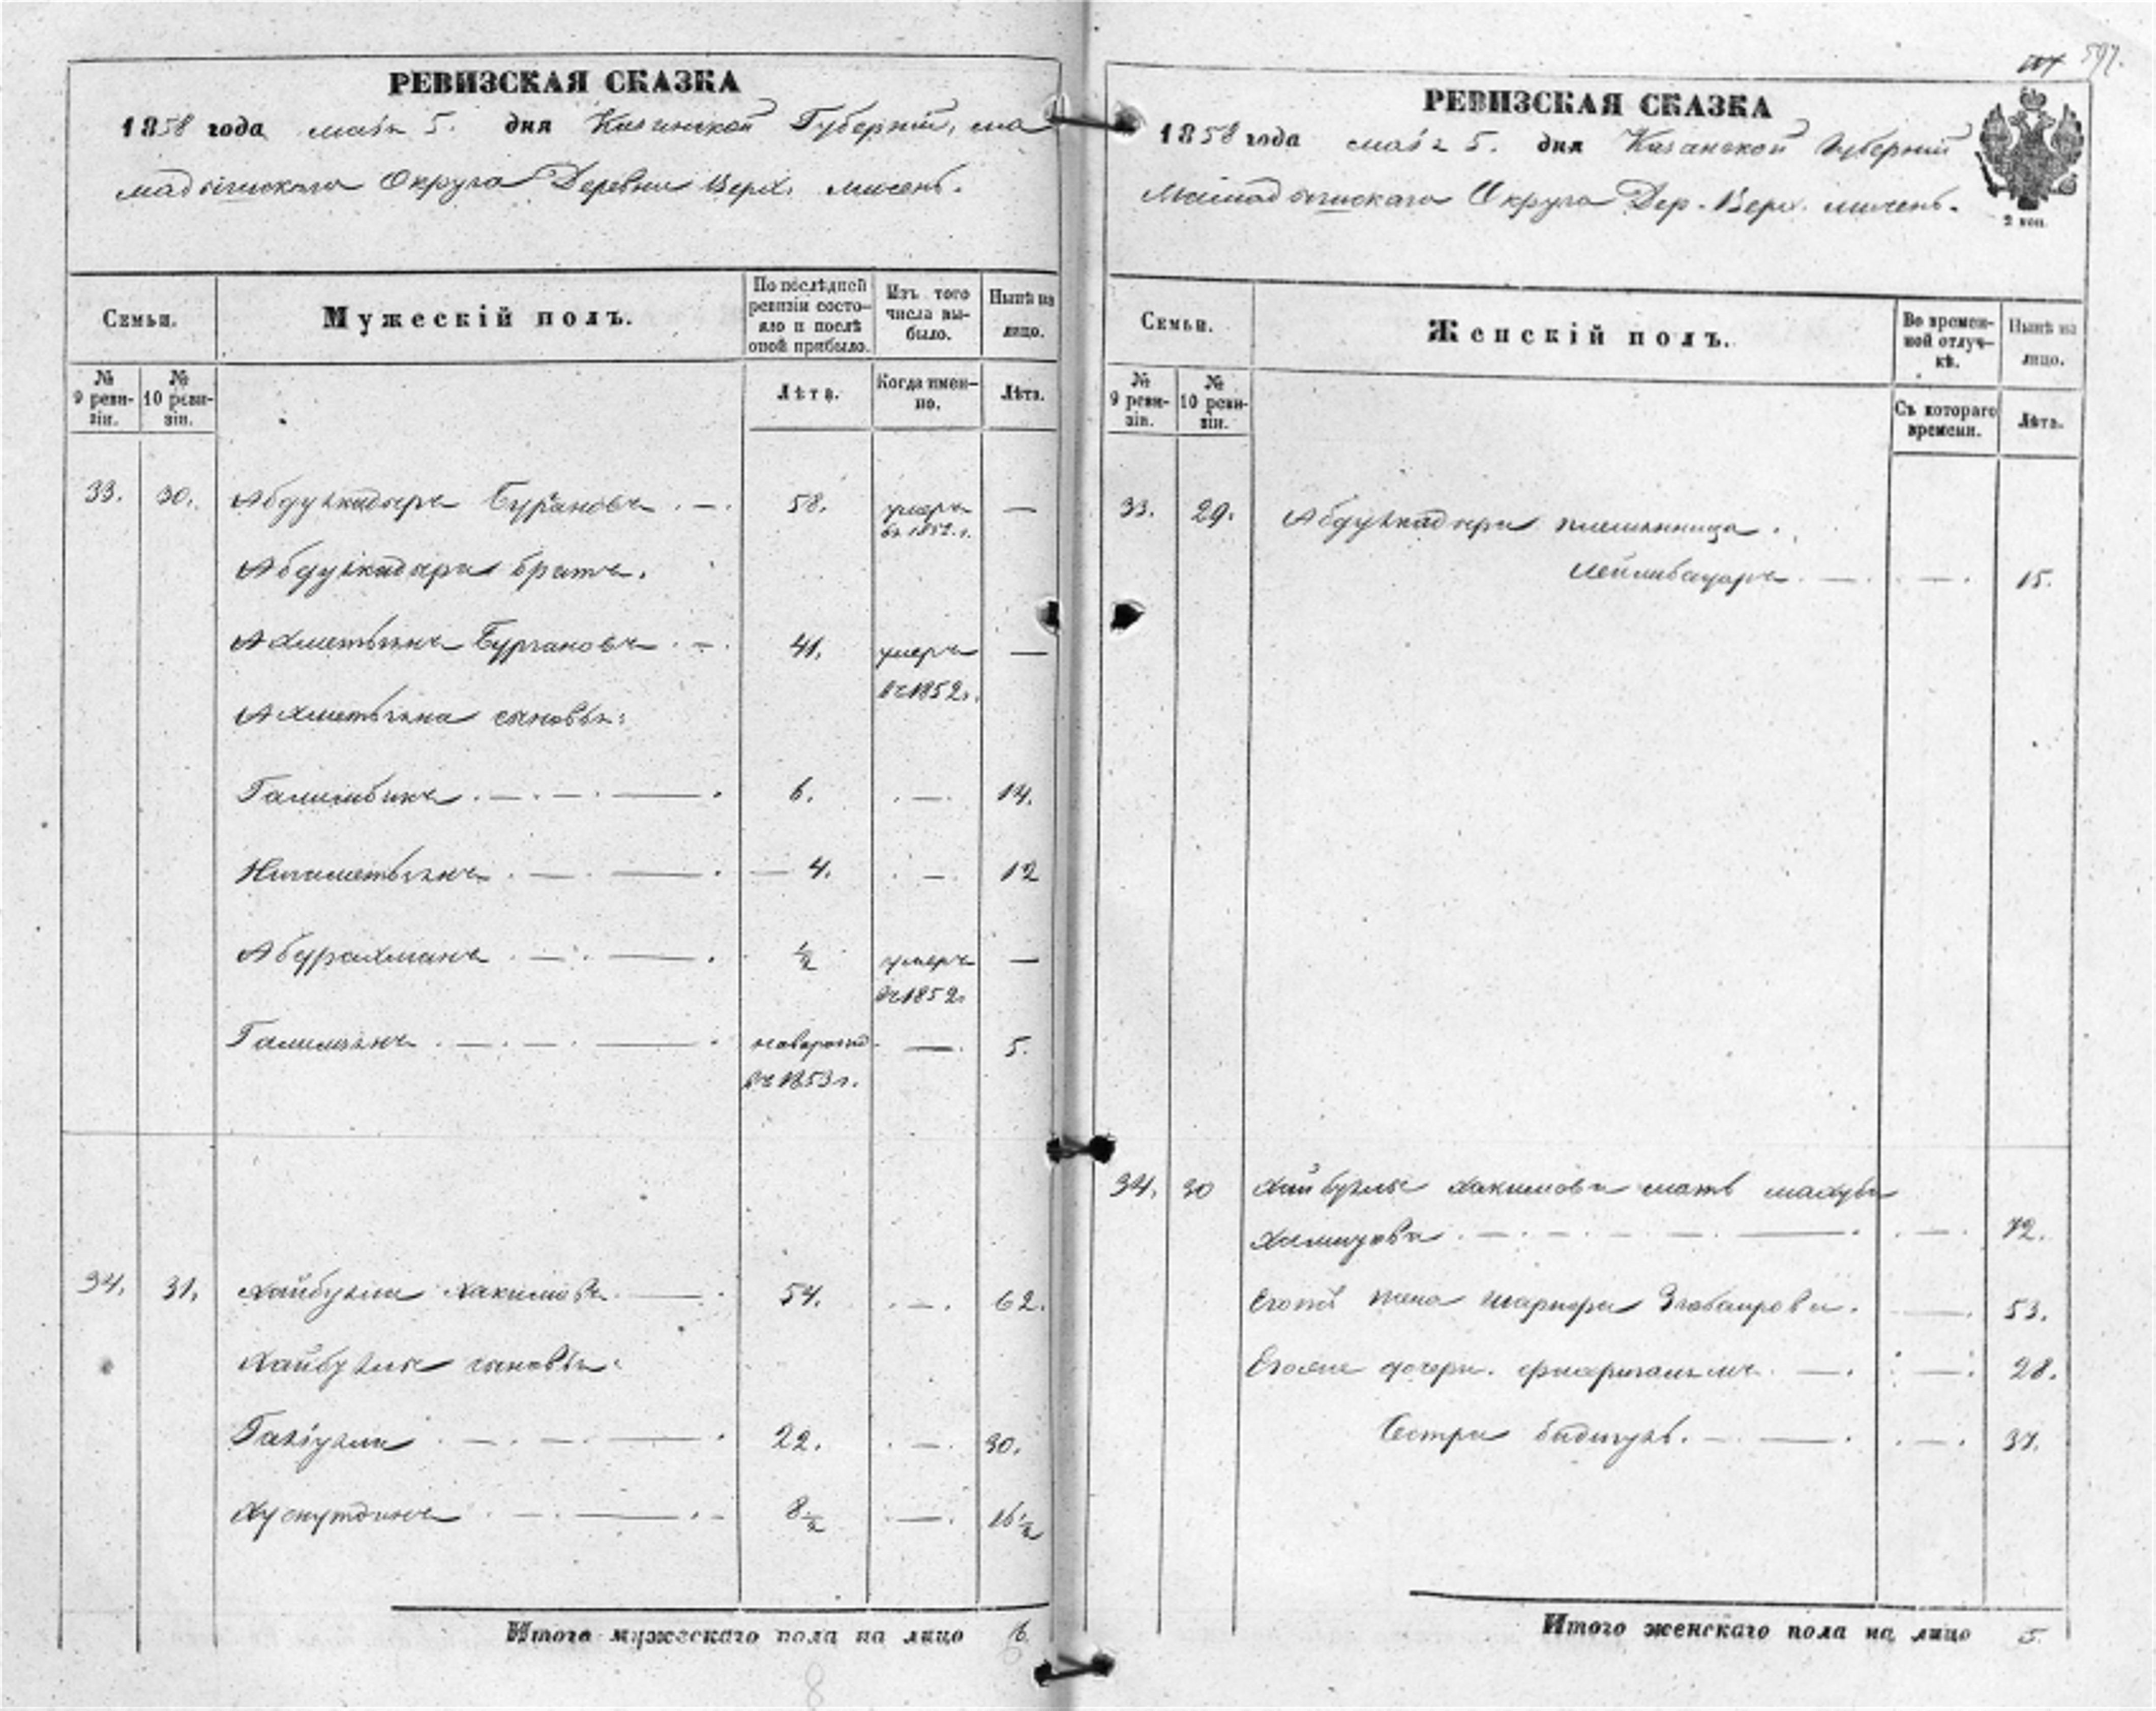 РЕВИЗСКАЯ СКАЗКА
1858 года маія 5. дня Казанской Губерніи, ма
мадышскаго Округа Деревни Верх.
Семьи.
Мужескій полъ.
По послѣдней ревизіи состо-
яло и послѣ
оной прибыло.
Изъ того
числа вы-
было.
Нынѣ на
лицо.
№
9 реви-
зіи.
№
10 реви-
зіи.
Лѣта.
Когда имен-
но.
Лѣта.
33. 30. Абдулкадыръ Бурановъ 58. умеръ —
въ 1852. г.
Абдулкадыра братъ.
Ахметьянъ Бургановъ 41. умеръ —
въ 1852.
Ахметьяна сыновья:
6. — 14.
Нигаметьзянъ — 4. — 12
Абдрахманъ ½ умеръ —
въ 1852.
Галимзянъ новорожд — 5.
въ 1853 г.
34. 31. Хайбулла Хакимовъ 54. — 62.
Хайбуллы сыновья:
22. — 30.
Хуснутдинъ 8½ — 16½
Итого мужескаго пола на лицо 6.
8
597.
РЕВИЗСКАЯ СКАЗКА
1858 года маія 5. дня Казанской Губерніи
Мамадышскаго Округа Дер. Верх.
2 коп.
Семьи.
Женскій полъ.
Во времен-
ной отлуч-
кѣ.
Нынѣ на
лицо.
№
9 реви-
зіи.
№
10 реви-
зіи.
Съ котораго
времени.
Лѣта.
33. 29. Абдулкадыра племянница.
— 15.
34. 30 Хайбуллы Хакимова мать
— 72.
Егоже жена — 53.
Егоже дочери. — 28.
Сестра — 37.
Итого женскаго пола на лицо 5.